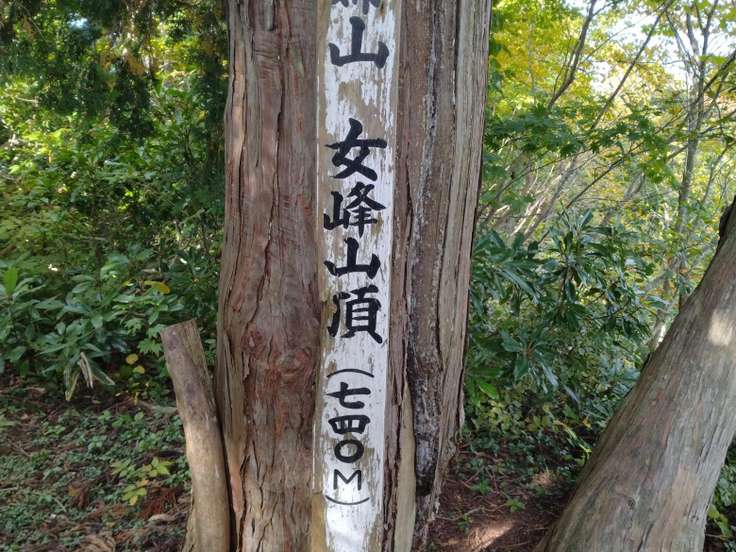 山 女峰山頂(七四〇M)